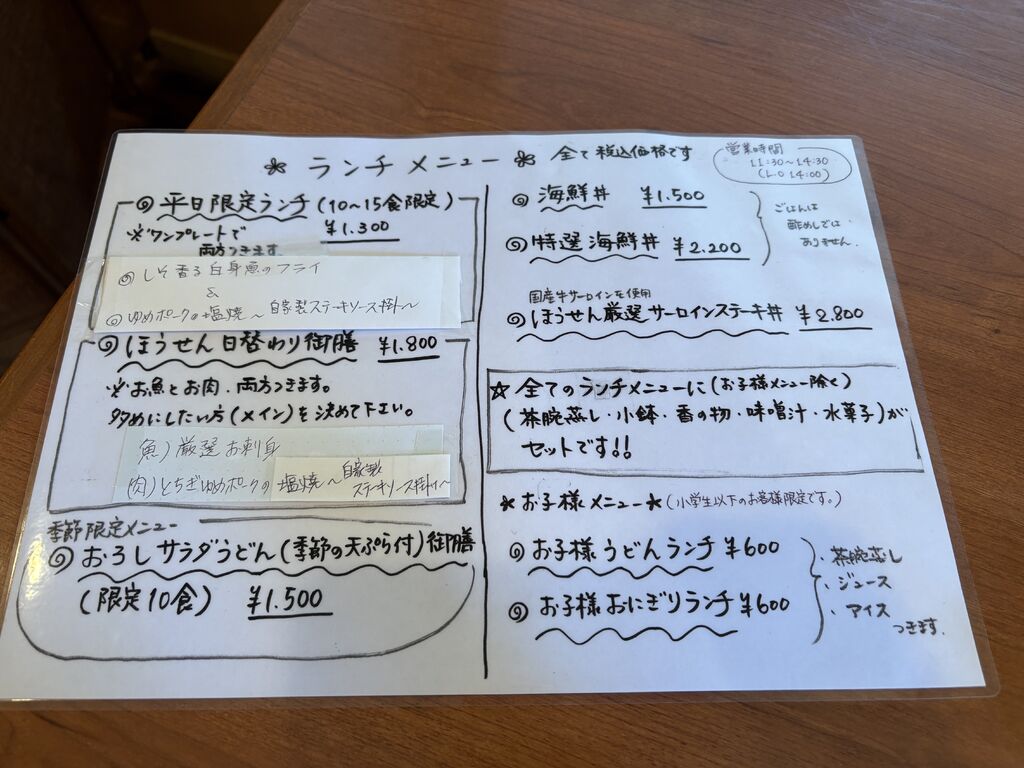 ＊ ランチ メニュー ＊ 全て税込価格です
営業時間
11:30〜14:30
(L・O 14:00)
◎ 平日限定ランチ (10〜15食限定)
※ワンプレートで ¥1.300
両方つきます
◎ しそ香る白身魚のフライ
&
◎ ゆめポークの塩焼〜自家製ステーキソース掛〜
◎ ほうせん日替わり御膳 ¥1.800
※お魚とお肉、両方つきます。
多めにしたい方(メイン)を決めて下さい。
魚) 厳選お刺身
(肉) とちぎゆめポークの塩焼〜自家製
ステーキソース掛け〜
季節限定メニュー
◎ おろしサラダうどん(季節の天ぷら付)御膳
(限定10食) ¥1.500
◎ 海鮮丼 ¥1.500
◎ 特選海鮮丼 ¥2.200
ごはんは
酢めしでは
ありません。
国産牛サーロインを使用
◎ ほうせん厳選サーロインステーキ丼 ¥2.800
☆ 全てのランチメニューに(お子様メニュー除く)
(茶碗蒸し・小鉢・香の物・味噌汁・水菓子)が
セットです!!
＊お子様メニュー＊(小学生以下のお客様限定です。)
◎ お子様うどんランチ ¥600
◎ お子様おにぎりランチ ¥600
・茶碗蒸し
・ジュース
・アイス
つきます。